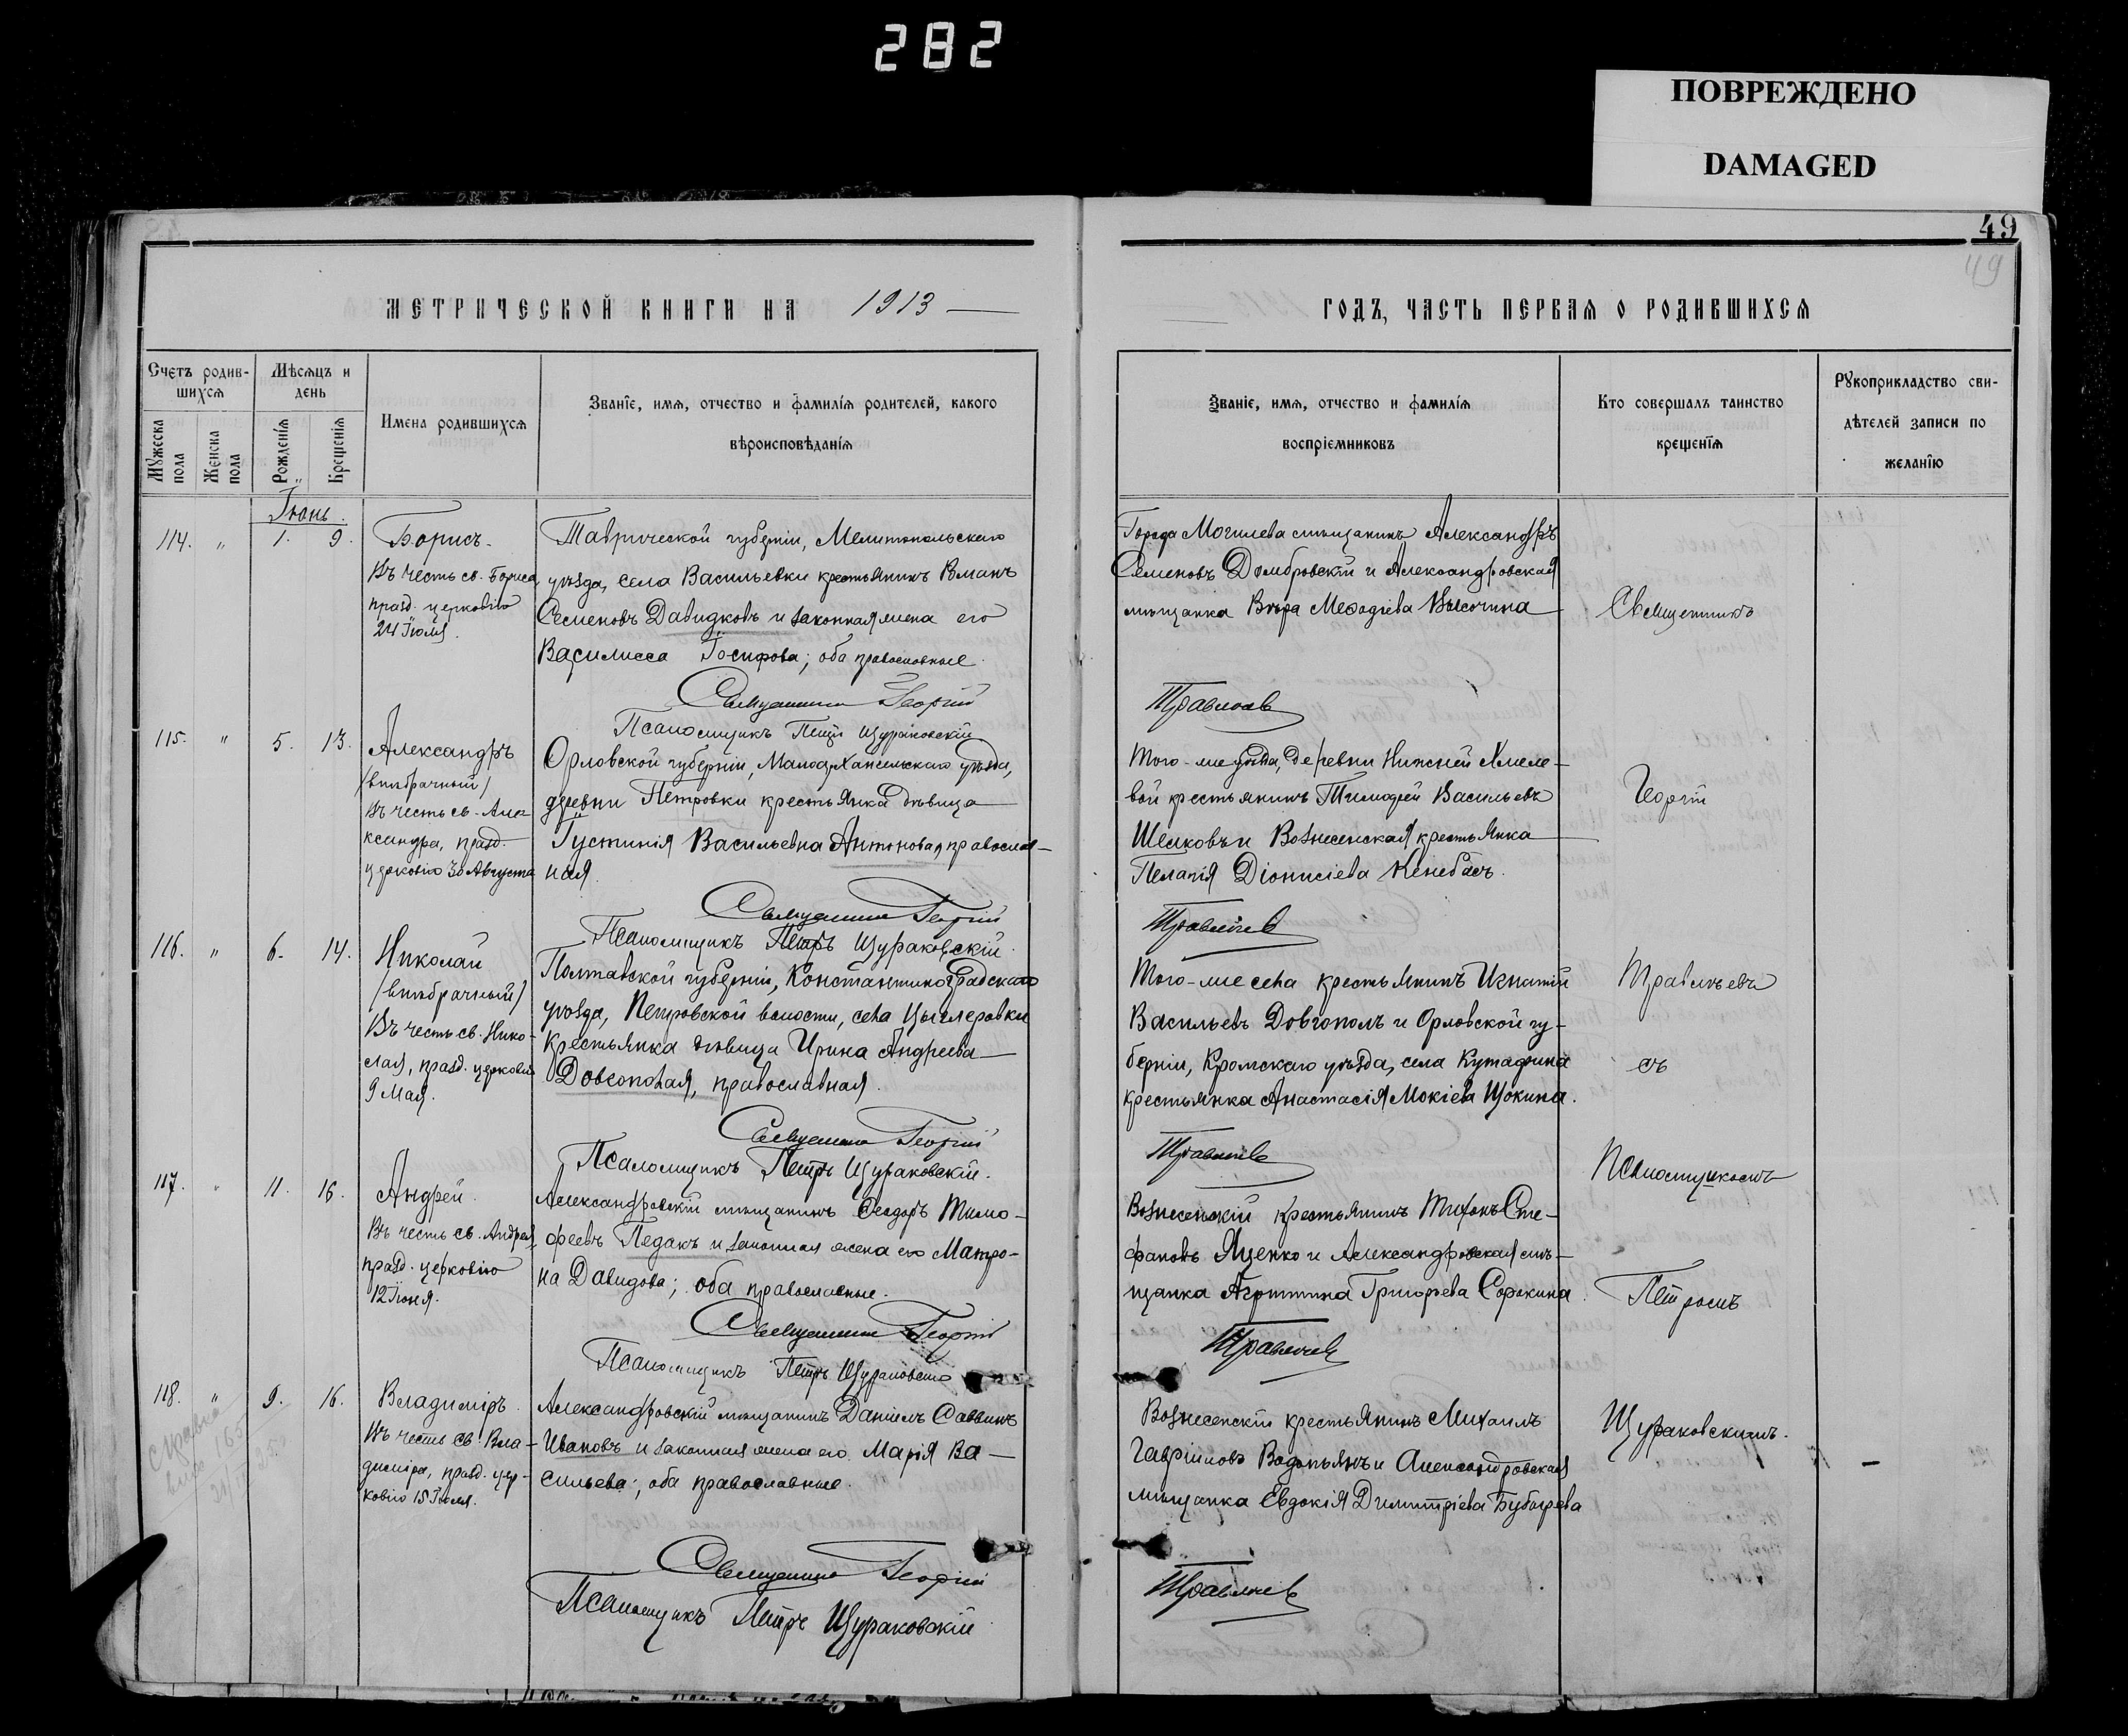 282
ПОВРЕЖДЕНО
DAMAGED
49
49
МЕТРИЧЕСКОЙ КНИГИ НА 1913
ГОДЪ, ЧАСТЬ ПЕРВАЯ О РОДИВШИХСЯ
Счетъ родив-
шихся
Мѣсяцъ и
день
Мужеска
пола
Женска
пола
Рожденія
Крещенія
Имена родившихся
Званіе, имя, отчество и фамилія родителей, какого
вѣроисповѣданія
Званіе, имя, отчество и фамилія
воспріемниковъ
Кто совершалъ таинство
крещенія
Рукоприкладство сви-
дѣтелей записи по
желанію
Іюнь.
114. " 1. 9.
Борисъ.
Въ честь св. Бориса,
празд. церковію
24 Іюля.
Таврической губерніи, Мелитопольскаго
уѣзда, села Васильевки крестьянинъ Романъ
Семеновъ Давидковъ и законная жена его
Василисса Іосифова; оба православные.
Священникъ Георгій
Псаломщикъ Петръ Щураковскій
Города Могилева мѣщанинъ Александръ
Семеновъ Домбровскій и Александровская
мѣщанка Вѣра Меѳодіева Высочина
Травлѣевъ
Священникъ
115. " 5. 13.
Александръ
/внѣбрачный/
Въ честь св. Але-
ксандра, празд.
церковію 30 Августа
Орловской губерніи, Малоархангельскаго уѣзда,
деревни Петровки крестьянка дѣвица
Іустинія Васильевна Антоновая, православ-
ная.
Священникъ Георгій
Псаломщикъ Петръ Щураковскій.
Того-же уѣзда, деревни Нижней Хмеле-
вой крестьянинъ Тимофей Васильевъ
Шелковъ и Вознесенская крестьянка
Пелагія Діонисіева Кенебасъ.
Травлѣевъ
Георгій
116. " 6. 14.
Николай
/внѣбрачный/
Въ честь св. Нико-
лая, празд. церковію
9 Мая.
Полтавской губерніи, Константиноградскаго
уѣзда, Петровской волости, села Цыглеровки
крестьянка дѣвица Ирина Андреева
Довгополая, православная.
Священникъ Георгій
Псаломщикъ Петръ Щураковскій.
Того-же села крестьянинъ Игнатій
Васильевъ Довгополъ и Орловской гу-
берніи, Кромскаго уѣзда, села Кутафина
крестьянка Анастасія Мокіева Щокина.
Травлѣевъ
Травлѣевъ
съ
117. " 11. 16.
Андрей.
Въ честь св. Андрея,
празд. церковію
12 Іюня.
Александровскій мѣщанинъ Ѳеодоръ Тимо-
феевъ Педакъ и законная жена его Матро-
на Давидова; оба православные.
Священникъ Георгій
Псаломщикъ Петръ Щураковскій
Вознесенскій крестьянинъ Тихонъ Сте-
фановъ Яценко и Александровская мѣ-
щанка Агриппина Григорьева Сорокина.
Травлѣевъ
Псаломщикомъ
Петромъ
118. " 9. 16.
Владиміръ.
Въ честь св. Вла-
диміра, празд. цер-
ковію 15 Іюля.
Александровскій мѣщанинъ Даніилъ Саввинъ
Ивановъ и законная жена его Марія Ва-
сильева; оба православные.
Священникъ Георгій
Псаломщикъ Петръ Щураковскій
Вознесенскій крестьянинъ Михаилъ
Гавріиловъ Водопьянъ и Александровская
мѣщанка Евдокія Димитріева Бубырева
Травлѣевъ
Щураковскимъ.